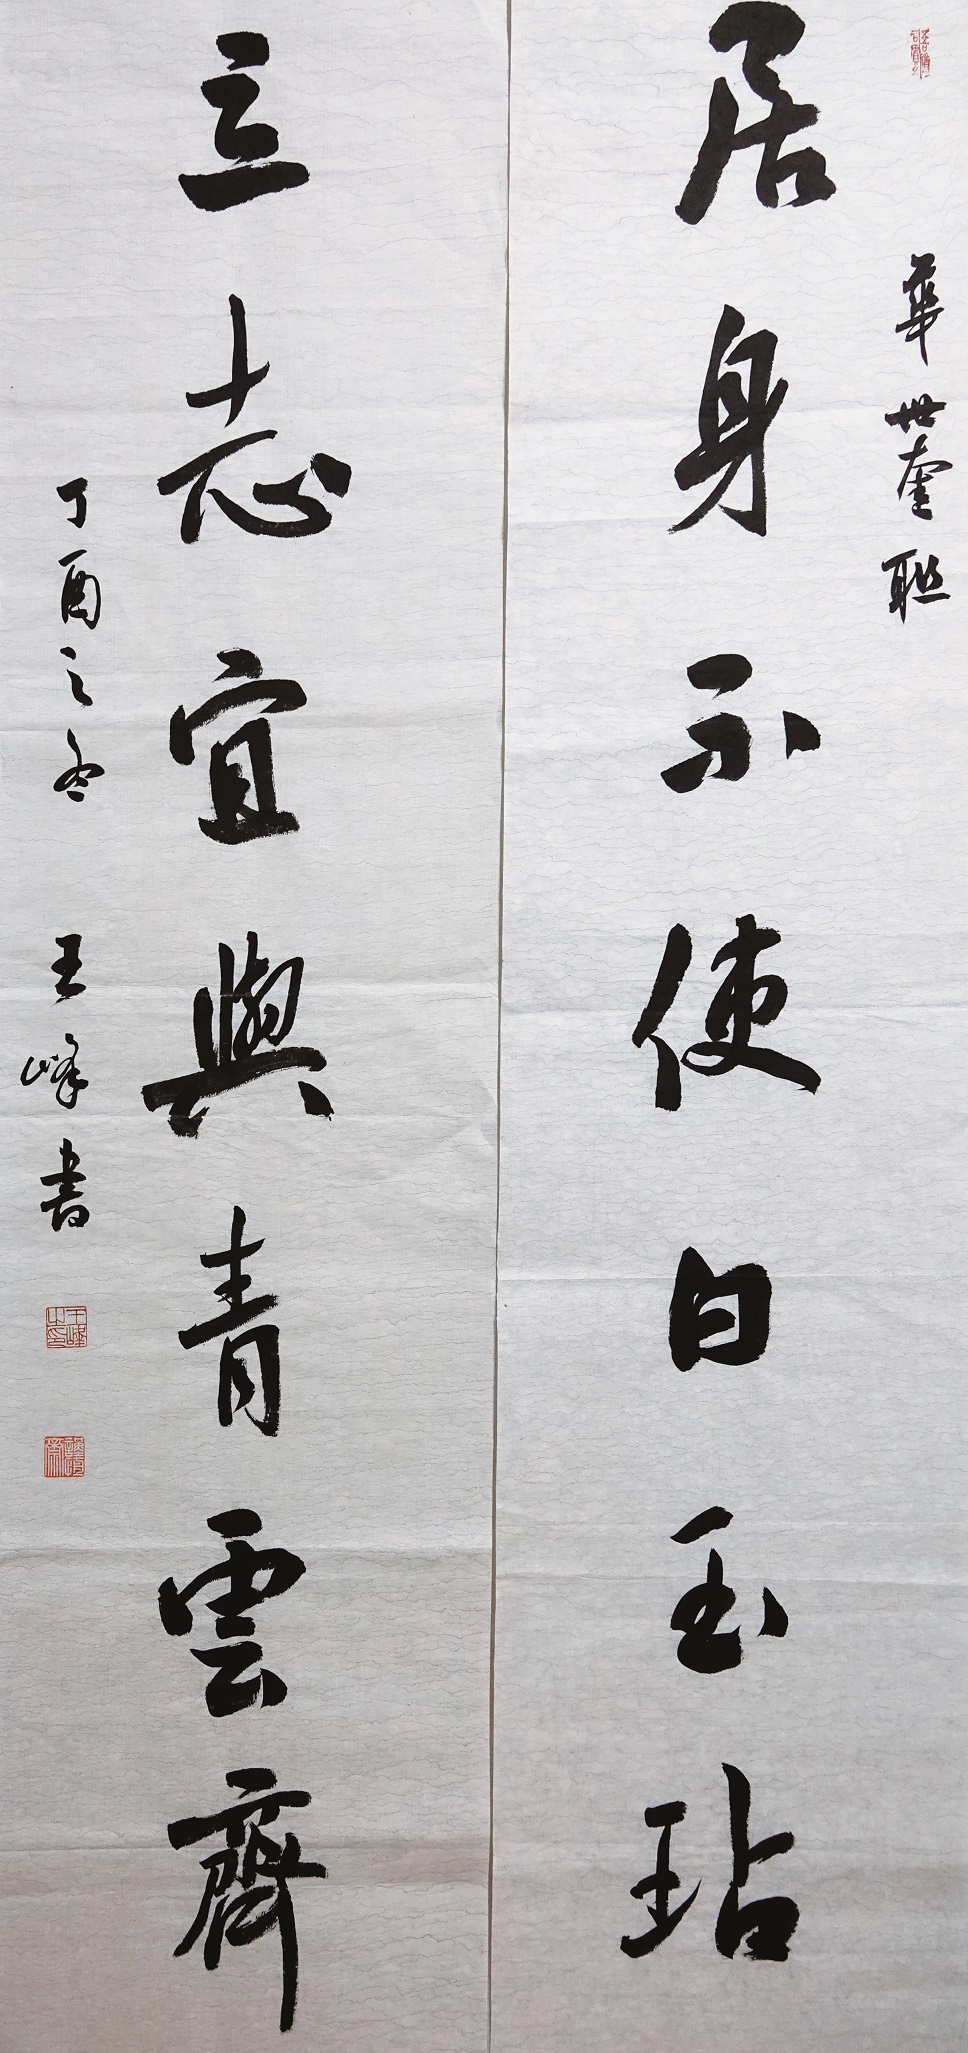 華世奎聯
居身不使白玉玷
立志宜與青雲齊
丁酉之冬 王峰書
王峰之印